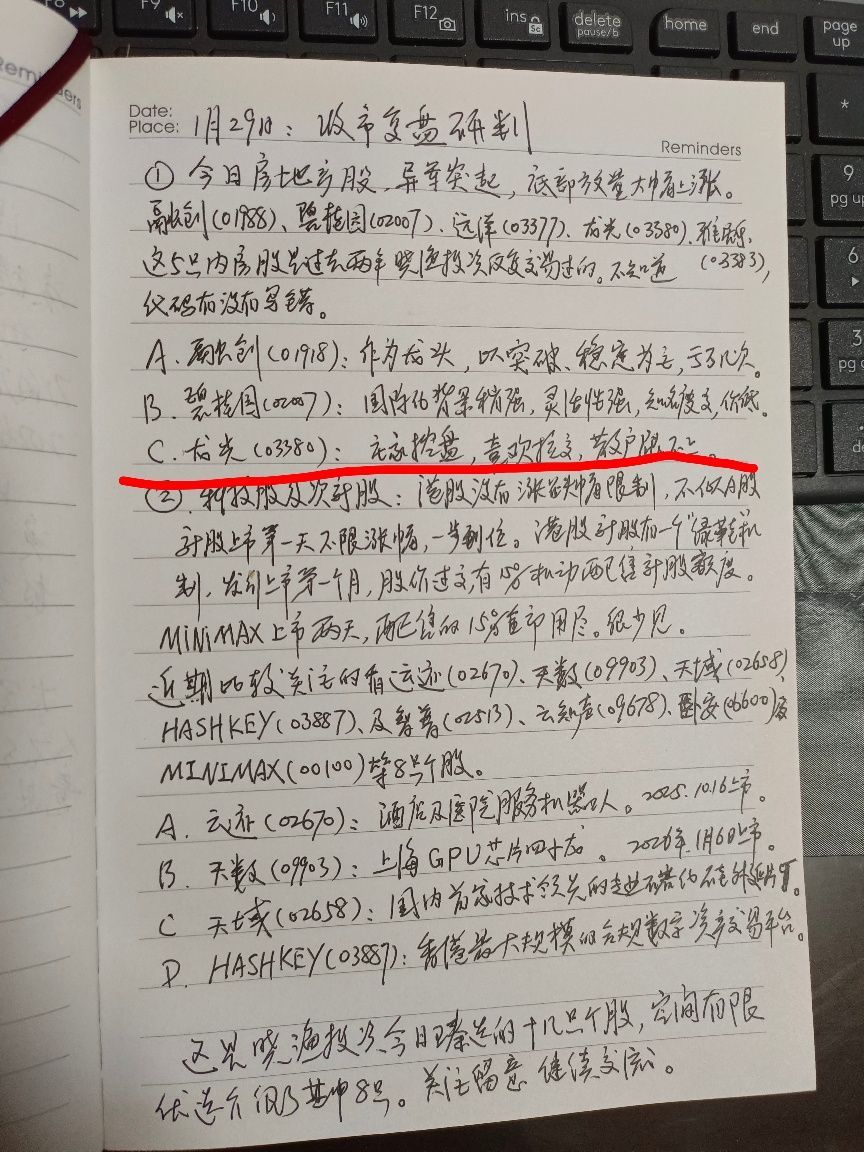 F9
F10
F11
F12
ins
Sc
delete
pause/b
home
end
page
up
*
9
pg up
6
3
pg
Reminders
Date:
Place: 1月29日：收市复盘研判
Reminders
① 今日房地产股，异军突起，底部放量大幅上涨。
融创(01988)、碧桂园(02007)、远洋(03377)、龙光(03380)、雅居乐
(03383)，
这5只内房股是过去两年晓渔投资反复交易过的。不知道
代码有没有写错。
A. 融创(01918)：作为龙头，以突破、稳定为主，亏了几次。
B. 碧桂园(02007)：国际化背景稍强，灵活性强，知名度高，价低。
C. 龙光(03380)：庄家控盘，喜欢拉高，散户跟不上。
② 科技股及次新股：港股没有涨跌幅限制，不似A股
新股上市第一天不限涨幅，一步到位。港股新股有一个“绿鞋”机
制，发行上市第一个月，股价过高有15%机动配售新股额度。
MiNiMAX上市两天，配售的15%直即用尽。很少见。
近期比较关注的有云迹(02670)、天数(09903)、天域(02658)、
HASHKEY(03887)、及智普(02513)、云知声(09678)、卧安(06600)及
MINIMAX(00100)等8只个股。
A. 云迹(02670)：酒店及医院服务机器人。2025.10.16上市。
B. 天数(09903)：上海GPU芯片四小龙。2026年1月6日上市。
C 天域(02658)：国内首家技术领先的专业碳化硅外延片。
D. HASHKEY(03887)：香港最大规模的合规数字资产交易平台。
这是晓渔投资今日臻选的十几只个股，空间有限
优选介绍了其中8只。关注留意 继续交流。